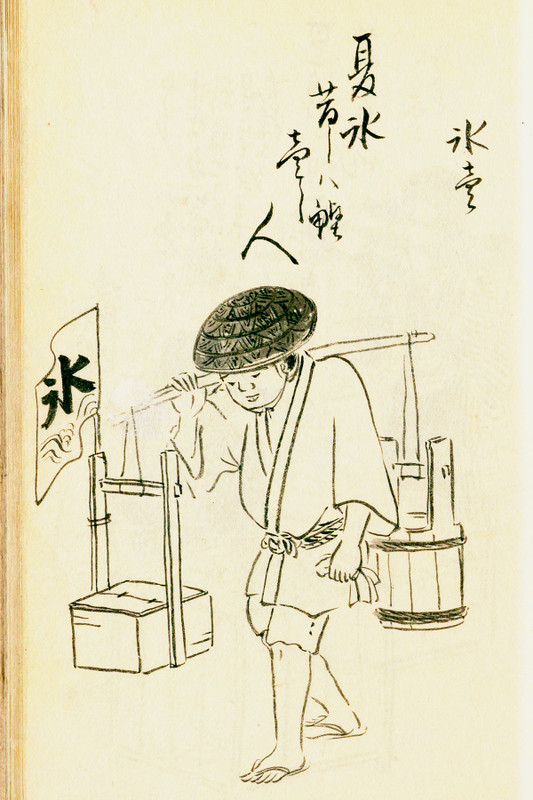 氷売
夏氷
昔しハ鰹
売し
人
氷